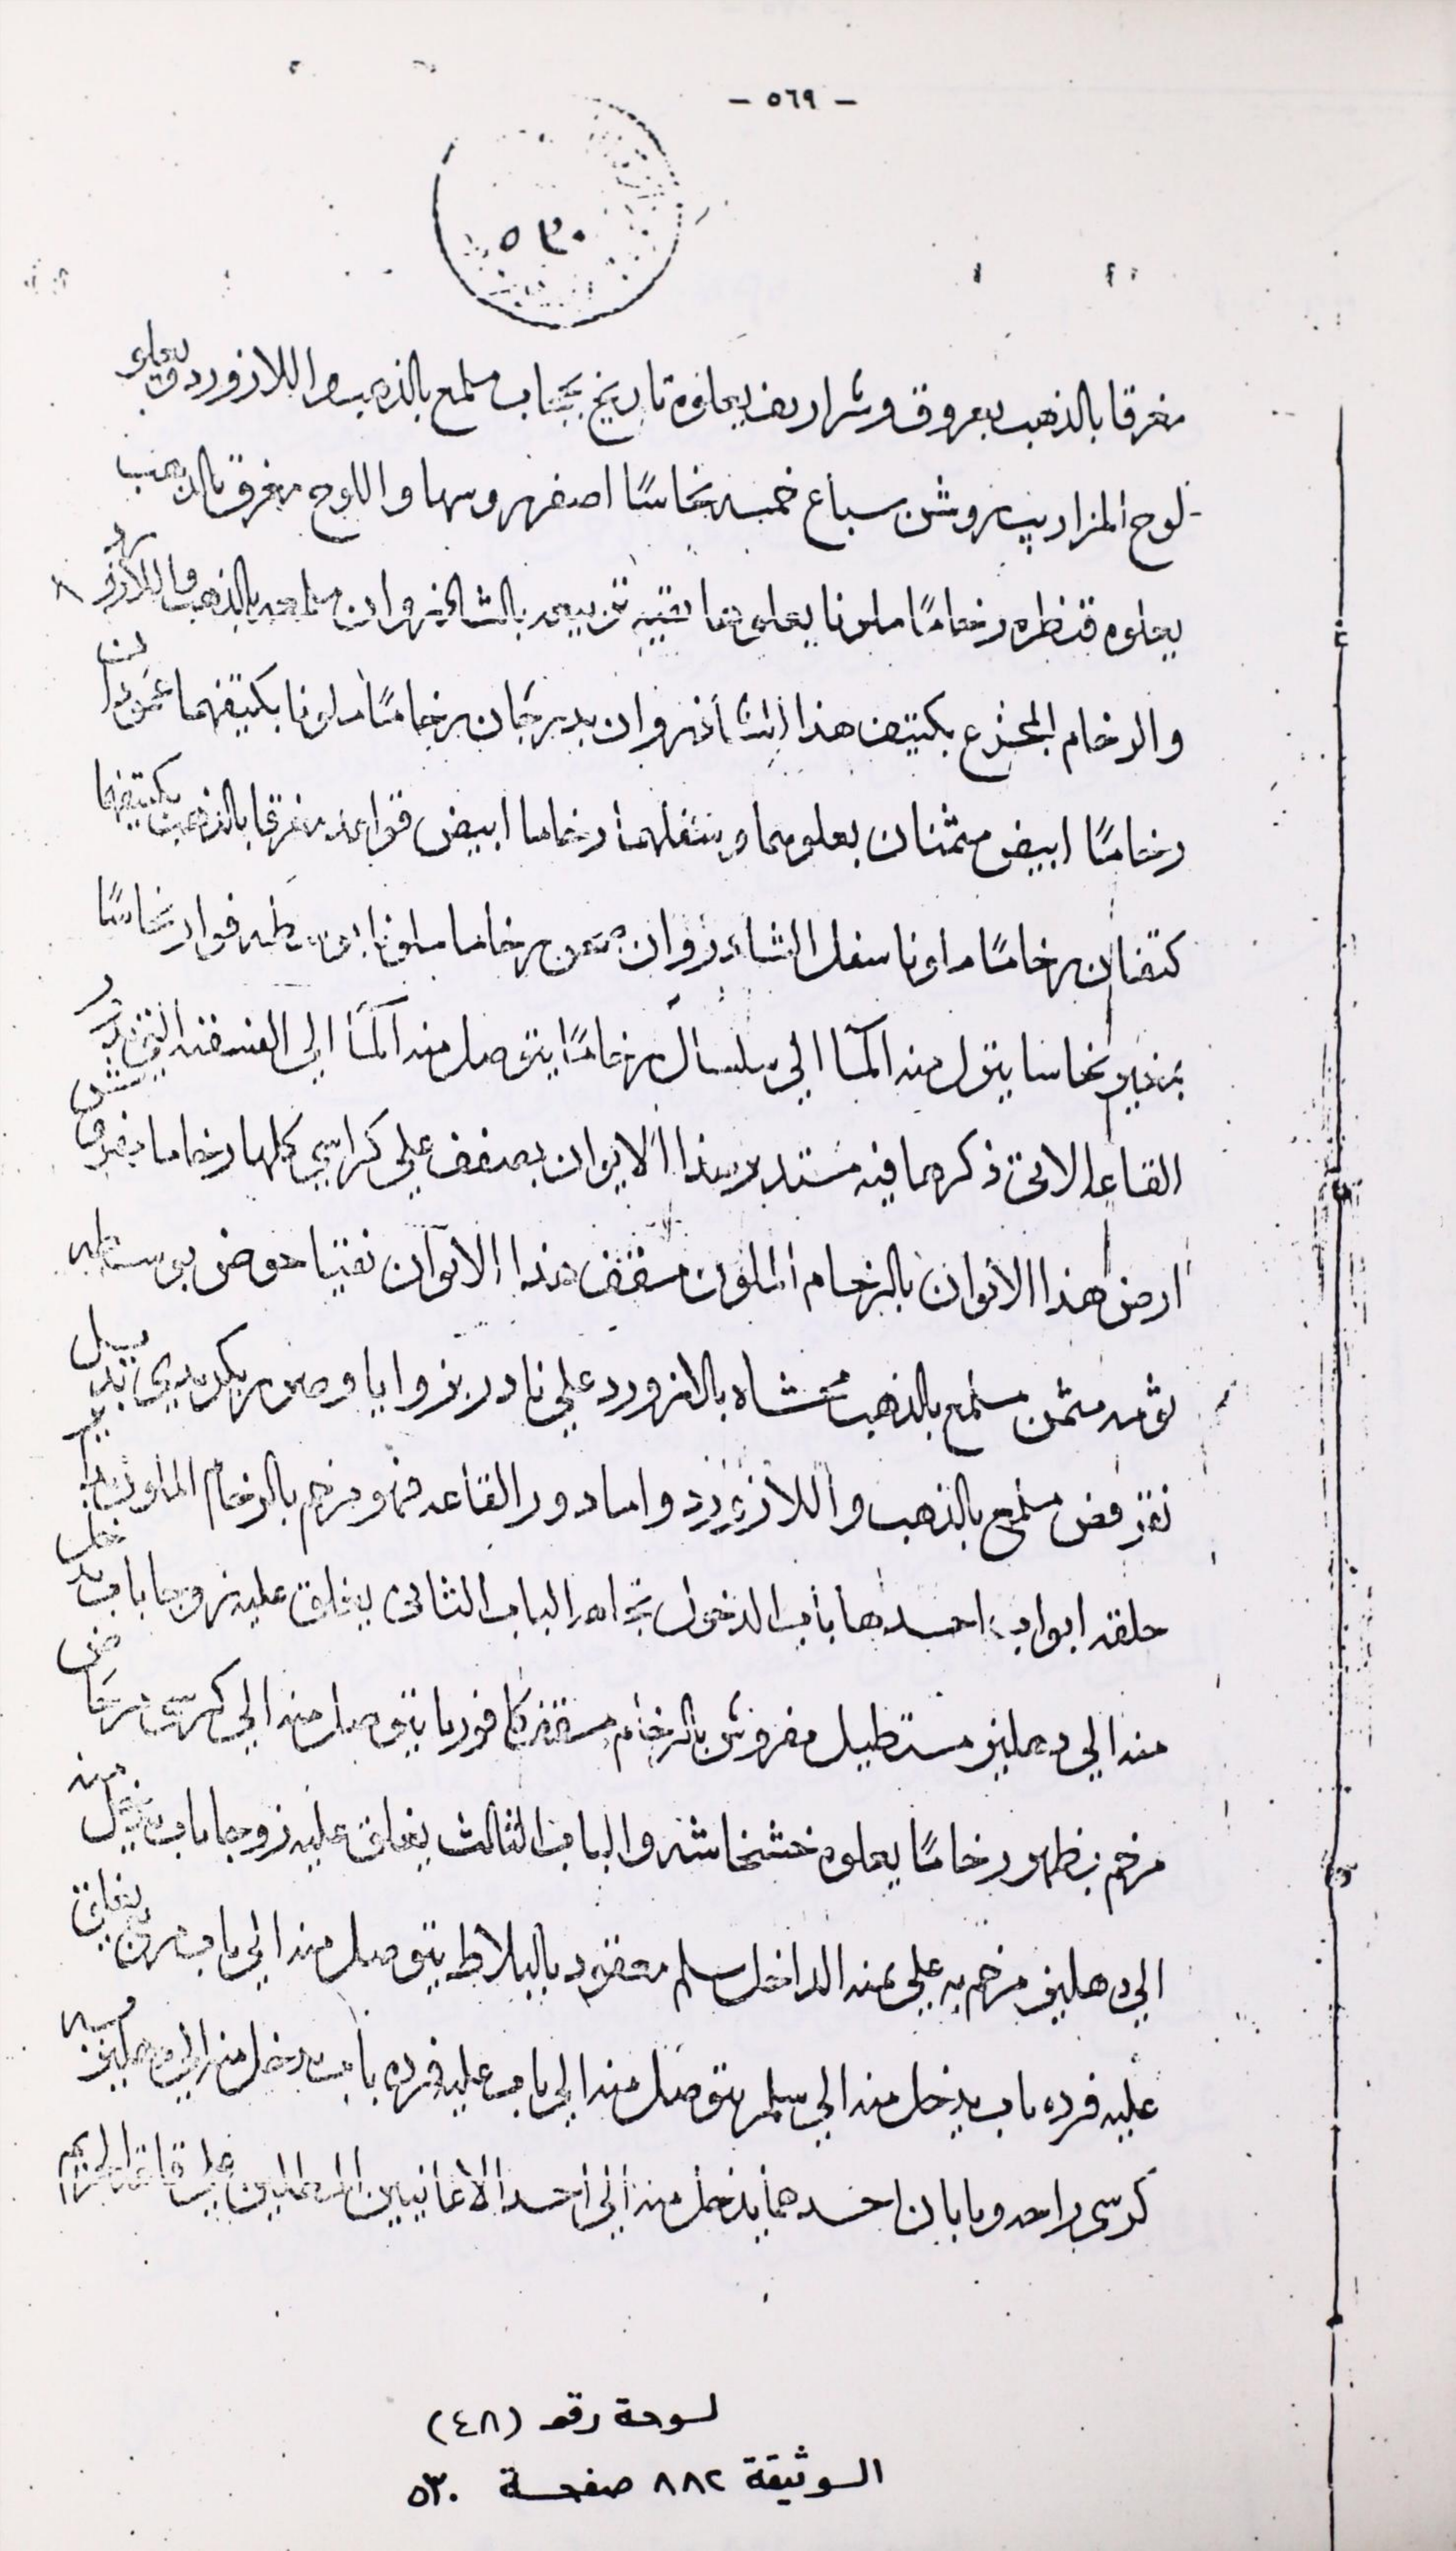 - ٥٦٩ -
٥٣٠
مغرقا بالذهب بعروق وشراريف يعلوه تاريخ بجناب ملمع بالذهب واللازورد يعلو
لوح المزاريب بروش سباع خمسه نحاسًا اصفر روسها واللوح مغرق بالذهب
يعلوه قنطره رخامًا ملونا يعلوها بقيه تربيعه بالشاذروان ملمعه بالذهب واللازورد
والرخام المجزع بكتيف هذا الشاذروان بدرجان رخامًا ملونا بكتيفهما عمودان
رخامًا ابيض مثمنان يعلوهما وسفلهما رخاما ابيض قواعد مغرقا بالذهب بكتيفهما
كتفان رخامًا ملونا سفل الشادروان صحن رخاما ملونا بوسطه فوار نحاسًا
نحاسا ينزل منه المآ الي سلسال رخامًا يتوصل منه المآ الي الفسقيه التي بدور
القاعه الاتي ذكرها فيه مستدير هذا الايوان بصفف علي كراسي كلها رخاما مفروش
ارض هذا الايوان بالرخام الملون مسقف هذا الايوان نقيا حوض بوسطه
مثمن ملمع بالذهب مغشاه بالازورد علي نا در بزوايا وصور بكريدي تذييل
ملمع بالذهب واللازورد واما دور القاعه فهو مرخم بالرخام الملون
حلقه ابواب احدها باب الدخول تجاهه الباب الثاني يغلق عليه زوجا باب يدخل
منه الي دهليز مستطيل مفروش بالرخام مسقف كافوريا يتوصل منه الي كرسي مرحاض
مرخم بظهور رخامًا يعلوه خشخاشه والباب الثالث يغلق عليه زوجا باب يدخل منه
الي دهليز مرخم به علي يمنه الداخل سلم معقود بالبلاط يتوصل منه الي باب مربع يغلق
عليه فرده باب يدخل منه الي سلم يتوصل منه الي باب عليه فرده باب يدخل منه الي دهليز به
كرسي واحد وبابان احدهما يدخل منه الي احد الاغانيين المطلين علي قاعه الحريم
لوحة رقم (٤٨)
الوثيقة ٨٨٢ صفحة ٥٣٠